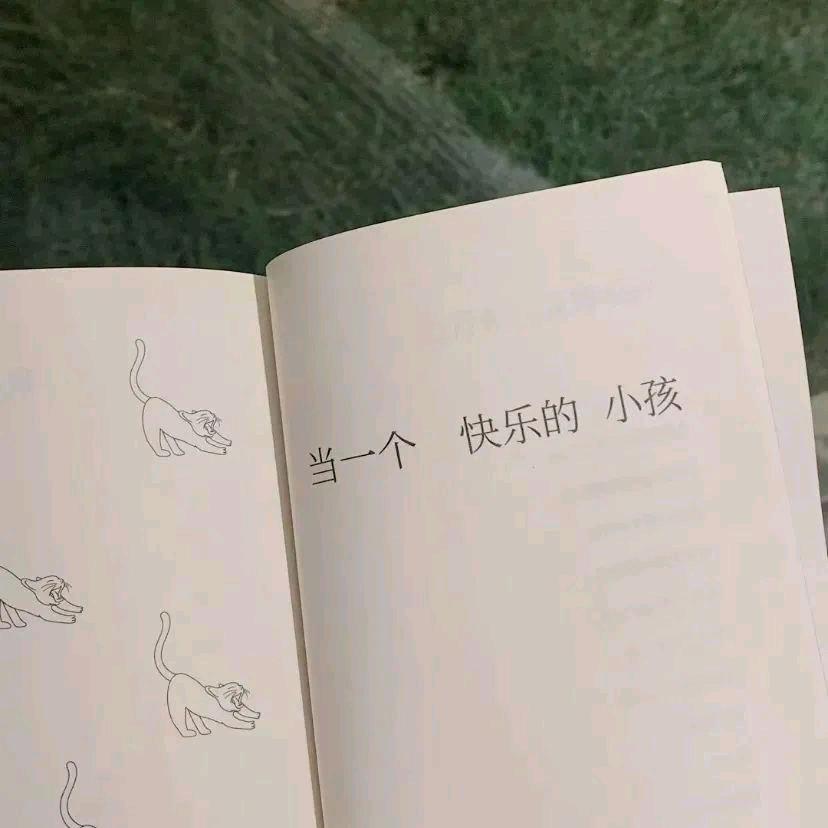 当一个 快乐的 小孩